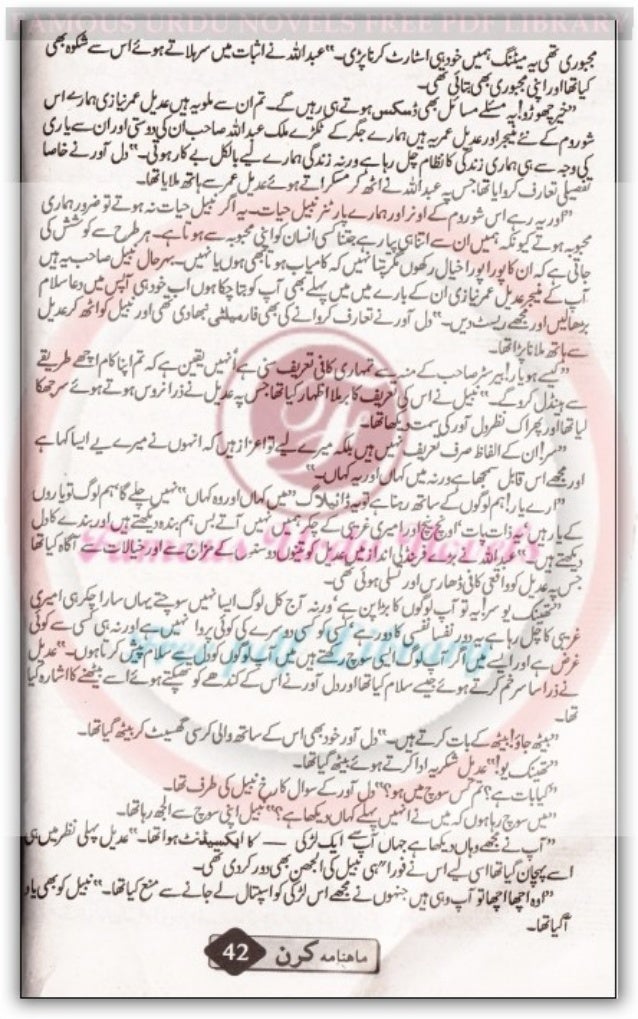 FAMOUS URDU NOVELS FREE PDF LIBRARY
مجبوری تھی یہ میٹنگ ہمیں خود ہی اسٹارٹ کرنا پڑی۔" عبداللہ نے اثبات میں سر ہلاتے ہوئے اس سے شکوہ بھی
کیا تھا اور اپنی مجبوری بھی بتائی تھی۔
"خیر چھوڑو! یہ مسئلے مسائل بھی ڈسکس ہوتے ہی رہیں گے۔ تم ان سے ملو یہ ہیں عدیل عمر نیازی ہمارے اس
شوروم کے نئے منیجر اور عدیل عمر یہ ہیں ہمارے جگر کے ٹکڑے ملک عبداللہ صاحب ان کی دوستی اور ان سے یاری
کی وجہ سے ہی ہماری زندگی کا نظام چل رہا ہے ورنہ زندگی ہمارے لیے بالکل بے کار ہوتی۔" دل آور نے خاصا
تفصیلی تعارف کروایا تھا جس پہ عبداللہ نے اٹھ کر مسکراتے ہوئے عدیل عمر سے ہاتھ ملایا تھا۔
"اور یہ رہے اس شوروم کے اونر اور ہمارے پارٹنر نبیل حیات۔ یہ اگر نبیل حیات نہ ہوتے تو ضرور ہماری
محبوبہ ہوتے کیونکہ ہمیں ان سے اتنا ہی پیار ہے جتنا کسی انسان کو اپنی محبوبہ سے ہوتا ہے۔ ہر طرح سے کوشش کی
جاتی ہے کہ ان کا پورا پورا خیال رکھوں مگر پتا نہیں کہ کامیاب ہوتا بھی ہوں یا نہیں۔ بہرحال نبیل صاحب یہ ہیں
آپ کے منیجر عدیل عمر نیازی ان کے بارے میں میں پہلے بھی آپ کو بتا چکا ہوں اب خود ہی آپس میں دعا سلام
بڑھالیں اور مجھے ریسٹ دیں۔" دل آور نے تعارف کروانے کی بھی فارمیلٹی نبھا دی تھی اور نبیل کو اٹھ کر عدیل
سے ہاتھ ملانا پڑا تھا۔
"کیسے ہو یار! بیرسٹر صاحب کے منہ سے تمہاری کافی تعریف سنی ہے انہیں یقین ہے کہ تم اپنا کام اچھے طریقے
سے ہینڈل کرو گے۔" نبیل نے اس کی تعریف کا برملا اظہار کیا تھا جس پہ عدیل نے ذرا نروس ہوتے ہوئے سر جھکا
لیا تھا اور پھر اک نظر دل آور کی سمت دیکھا تھا۔
"سر! ان کے الفاظ صرف تعریف نہیں ہیں بلکہ میرے لیے تو اعزاز ہیں کہ انہوں نے میرے لیے ایسا کہا ہے
اور مجھے اس قابل سمجھا ہے ورنہ میں کہاں اور یہ کہاں۔"
"ارے یار! ہم لوگوں کے ساتھ رہنا ہے تو یہ ڈائیلاگ "میں کہاں اور وہ کہاں" نہیں چلے گا، ہم لوگ تو یاروں
کے یار ہیں یہ ذات پات، اونچ نیچ اور امیری غریبی کے چکر ہمیں نہیں آتے بس ہم بندہ دیکھتے ہیں اور بندے کا دل
دیکھتے ہیں۔" عبداللہ نے بڑے انداز میں عدیل کو تینوں دوستوں کے مزاج سے اور خیالات سے آگاہ کیا تھا
جس پہ عدیل کو واقعی کافی ڈھارس اور تسلی ہوئی تھی۔
"تھینک یو سر! یہ تو آپ لوگوں کا بڑا پن ہے، ورنہ آج کل لوگ ایسا نہیں سوچتے یہاں سارا چکر ہی امیری
غریبی کا چل رہا ہے یہ دور نفسا نفسی کا دور ہے، کسی کو کسی دوسرے کی کوئی پروا نہیں ہے اور نہ ہی کسی سے کوئی
غرض ہے اور ایسے میں اگر آپ لوگ ایسی سوچ رکھتے ہیں میں آپ لوگوں کو دل سے سلام پیش کرتا ہوں۔" عدیل
نے ذرا سا سر خم کرتے ہوئے جیسے سلام کیا تھا اور دل آور نے اس کے کندھے کو تھپکتے ہوئے اسے بیٹھنے کا اشارہ کیا
تھا۔
"بیٹھ جاؤ! بیٹھ کے بات کرتے ہیں۔" دل آور خود بھی اس کے ساتھ والی کرسی گھسیٹ کر بیٹھ گیا تھا۔
"تھینک یو!" عدیل شکریہ ادا کرتے ہوئے بیٹھ گیا تھا۔
"کیا بات ہے؟ تم کس سوچ میں ہو؟" دل آور کے سوال کا رخ نبیل کی طرف تھا۔
"میں سوچ رہا ہوں کہ میں نے انہیں پہلے کہاں دیکھا ہے؟" نبیل اپنی سوچ سے الجھ رہا تھا۔
"آپ نے مجھے وہاں دیکھا ہے جہاں آپ سے ایک لڑکی —— کا ایکسیڈنٹ ہوا تھا۔" عدیل پہلی نظر میں ہی
اسے پہچان گیا تھا اسی لیے اس نے فوراً ہی نبیل کی الجھن بھی دور کر دی تھی۔
"اوہ اچھا اچھا تو آپ وہی ہیں جنہوں نے مجھے اس لڑکی کو اسپتال لے جانے سے منع کیا تھا۔" نبیل کو بھی یاد
آگیا تھا۔
Famous Urdu Novels
Free pdf Library
ماہنامہ کرن 42